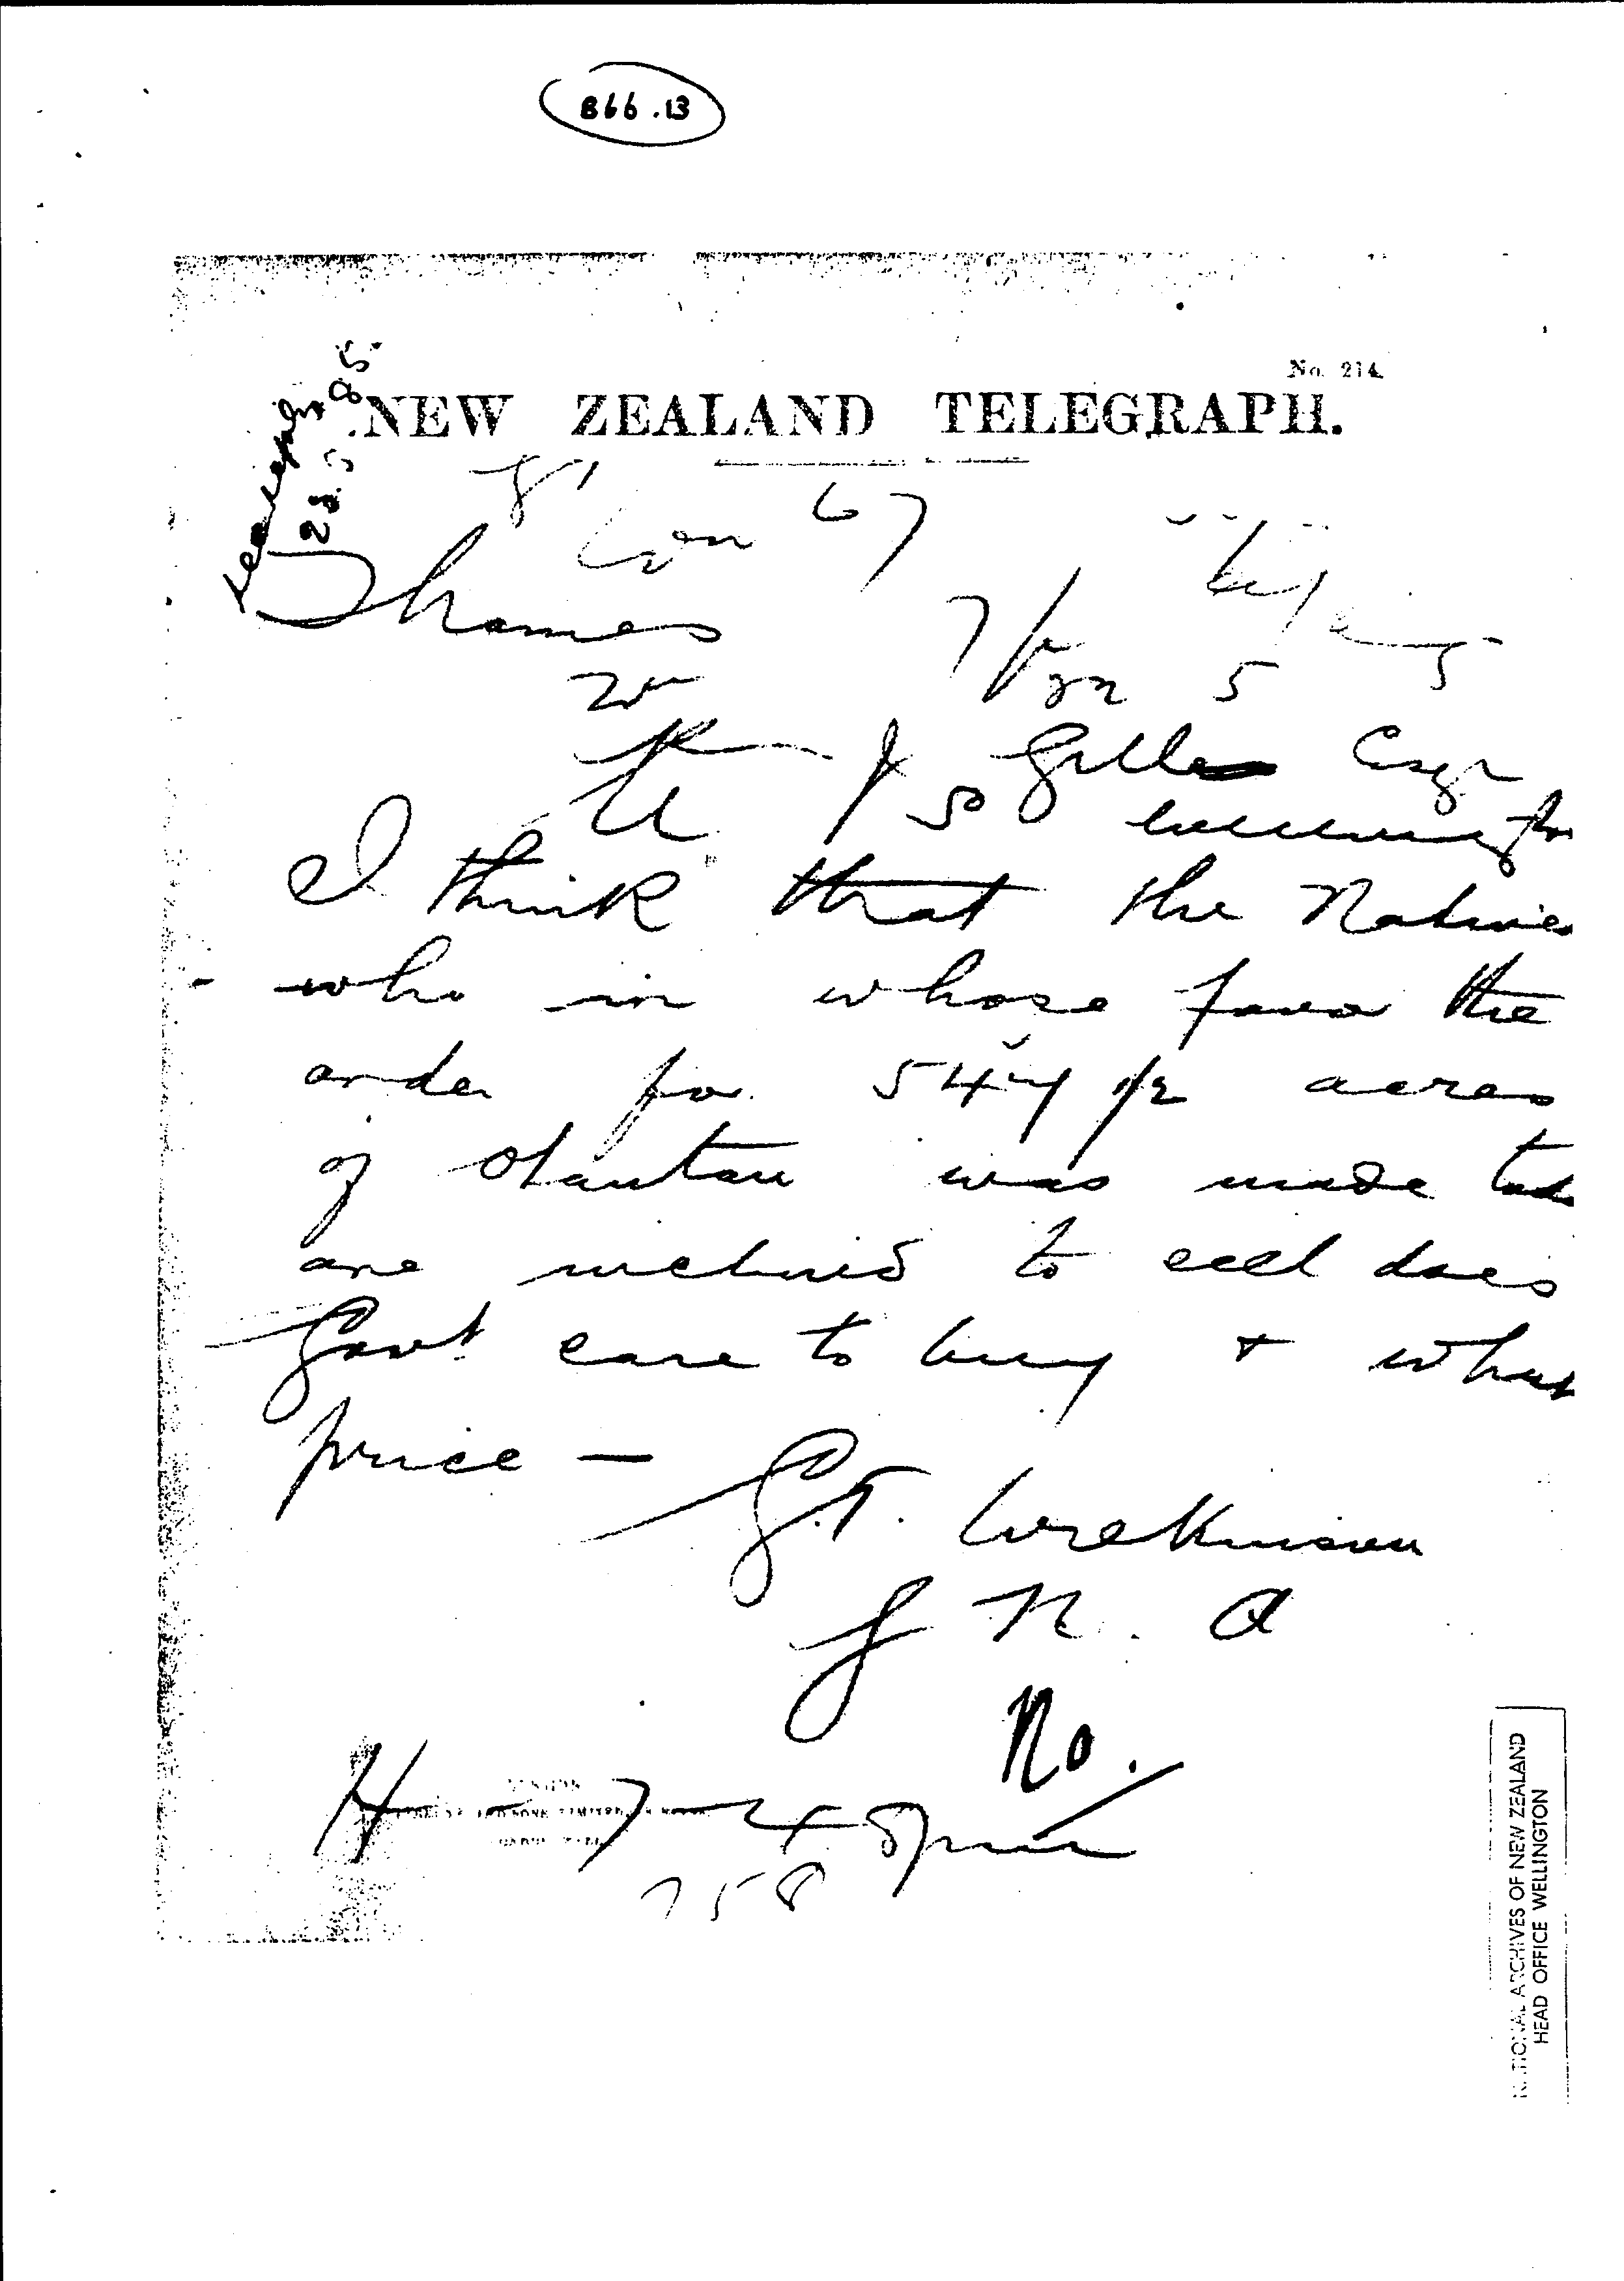 B66.13
No. 214.
NEW ZEALAND TELEGRAPH.
23.5.85
67
Thames
22 5
Gill Esqr
Wellington
I think that the Natives
who in whose favor the
order for 547 1/2 acres
of was made
are inclined to sell does
Govt care to buy + what
price —
G.T. Wilkinson
N. A
No.
H - 7-48pm
758
NATIONAL ARCHIVES OF NEW ZEALAND
HEAD OFFICE WELLINGTON